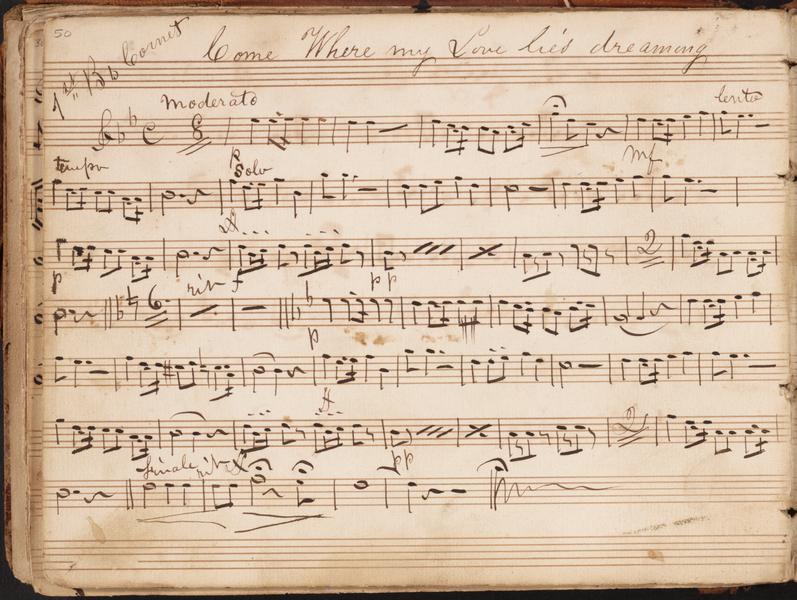 50
1st Bb Cornet
Come Where my Love lies dreaming
moderato
8
lento
tempo
p
Solo
mf
p
rit f
pp
2
6
p
pp
2
finale rit
pp